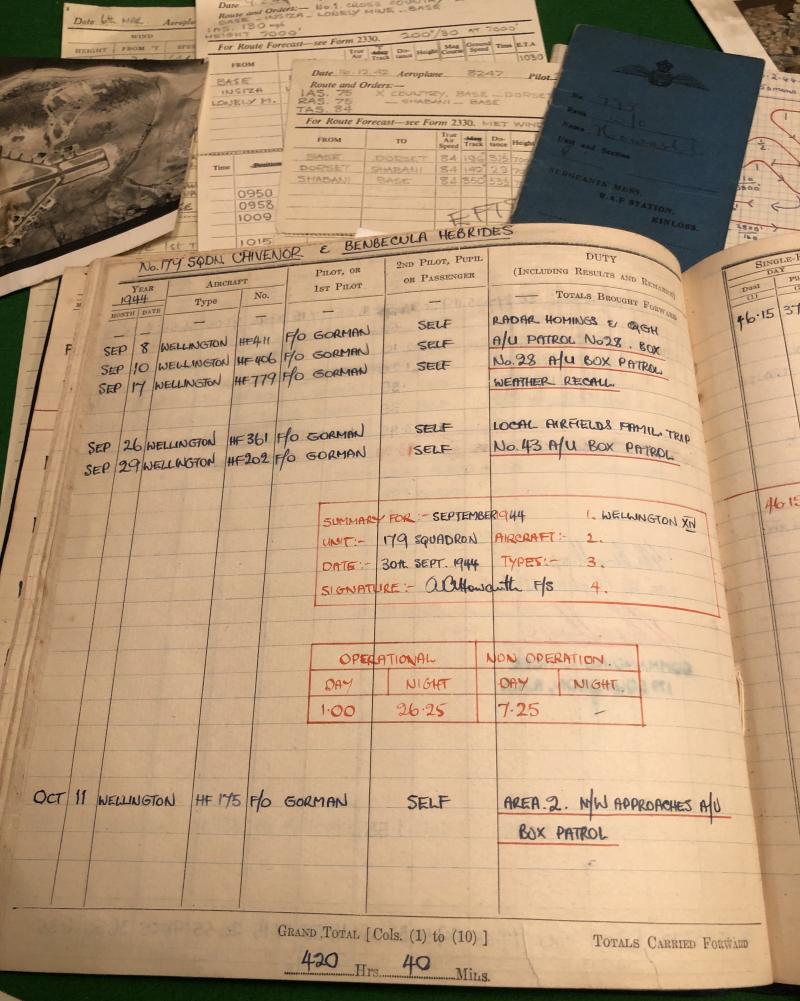 Date 6th MAR. Aeropla
WIND
HEIGHT FROM °T SPE
Route and Orders:— No 1. CROSS COUNTRY
BASE - INSIZA - LONELY MINE - BASE
IAS. 130 mph
HEIGHT 7000' 200°/30 AT 7000'
For Route Forecast—see Form 2330.
FROM
True Air Mag Track Dis- tance Height Mag Course Ground Speed Time E.T.A
1030
BASE
INSIZA
LONELY M.
Time Position
0950
0958
1009
1015
Date 16.12.42 Aeroplane 8247 Pilot
Route and Orders:—
IAS. 75 X COUNTRY, BASE - DORSET
RAS. 75 - SHABANI - BASE
TAS. 84
For Route Forecast—see Form 2330. MET WIND
FROM TO True Air Speed Mag Track Dis- tance Height
BASE DORSET 84 196
DORSET SHABANI 84 142
SHABANI BASE 84 350
No.
Rank
Name Howarth
Unit and Section
SERGEANTS' MESS,
R.A.F STATION,
KINLOSS.
No. 179 SQDN CHIVENOR & BENBECULA HEBRIDES
YEAR 1944 AIRCRAFT PILOT, OR 1ST PILOT 2ND PILOT, PUPIL OR PASSENGER DUTY (INCLUDING RESULTS AND REMARKS)
MONTH DATE Type No. TOTALS BROUGHT FORWARD
— — — — — —
SEP 8 WELLINGTON HF411 F/O GORMAN SELF RADAR HOMINGS & QGH
SEP 10 WELLINGTON HF406 F/O GORMAN SELF A/U PATROL No28. BOX
SEP 17 WELLINGTON HF779 F/O GORMAN SELF No.28 A/U BOX PATROL
WEATHER RECALL.
SEP 26 WELLINGTON HF361 F/O GORMAN SELF LOCAL AIRFIELDS FAMIL. TRIP
SEP 29 WELLINGTON HF202 F/O GORMAN SELF No.43 A/U BOX PATROL
SUMMARY FOR:- SEPTEMBER 1944 1. WELLINGTON XIV
UNIT:- 179 SQUADRON AIRCRAFT:- 2.
DATE:- 30th SEPT. 1944 TYPES:- 3.
SIGNATURE:- Howarth F/S 4.
OPERATIONAL NON OPERATION.
DAY NIGHT DAY NIGHT
1·00 26·25 7·25 –
OCT 11 WELLINGTON HF 175 F/O GORMAN SELF AREA.2. N/W APPROACHES A/U
BOX PATROL
GRAND TOTAL [Cols. (1) to (10)] TOTALS CARRIED FORWARD
420 Hrs. 40 Mins.
SINGLE-
DAY
Dual
(1)
46·15 37
46·15